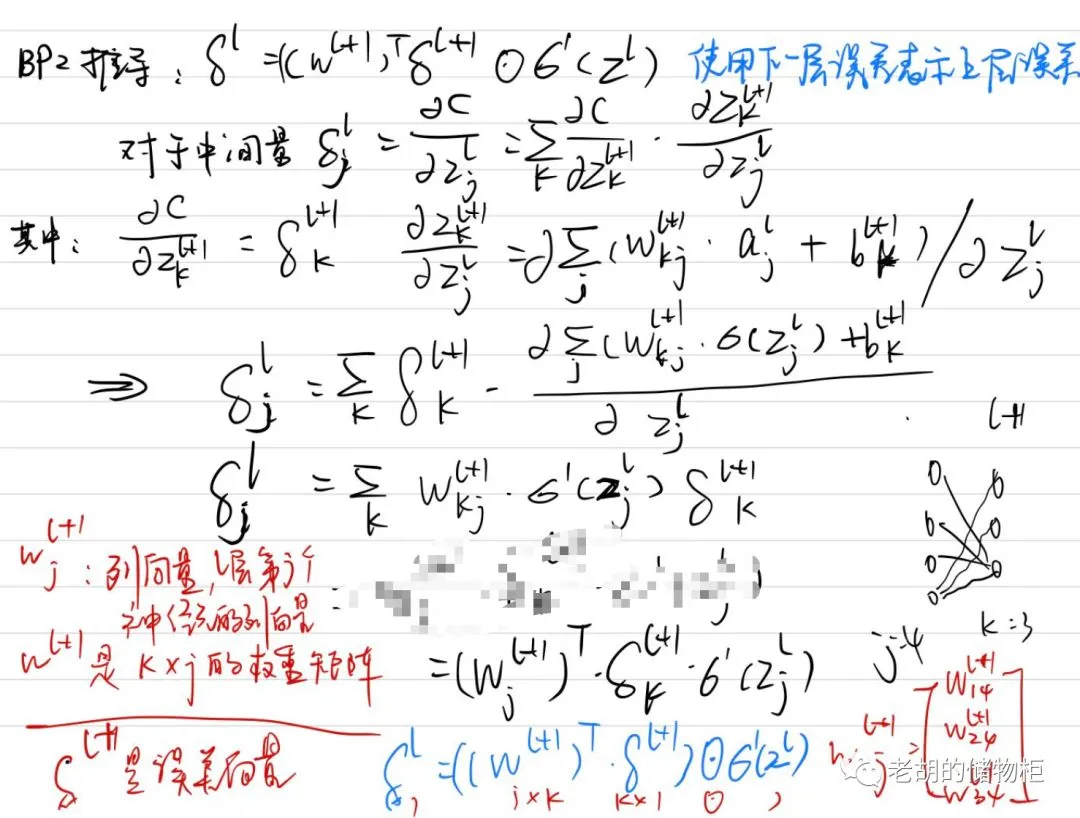 BP2 推导: δ^l =((w^{l+1})^T δ^{l+1} ⊙ σ'(z^l) 使用下一层误差表示上层误差
对于中间量 δ_j^l = ∂C/∂z_j^l = Σ_k ∂C/∂z_k^{l+1} · ∂z_k^{l+1}/∂z_j^l
其中: ∂C/∂z_k^{l+1} = δ_k^{l+1} ∂z_k^{l+1}/∂z_j^l = ∂Σ_j(w_{kj}^{l+1} · a_j^l + b_k^{l+1})/∂z_j^l
⇒ δ_j^l = Σ_k δ_k^{l+1} · ∂Σ_j(w_{kj}^{l+1} · σ(z_j^l) + b_k^{l+1}/∂z_j^l
l+1
δ_j^l = Σ_k w_{kj}^{l+1} · σ'(z_j^l) δ_k^{l+1}
w_j^{l+1}: 列向量, l层第j个
神经元的列向量
=
w^{l+1} 是 k×j 的权重矩阵
= (w_j^{l+1})^T · δ_k^{l+1} · σ'(z_j^l)
j=4 k=3
δ^{l+1} 是误差向量
δ^l = ((w^{l+1})^T · δ^{l+1}) ⊙ σ'(z^l)
j×k k×1 ⊙
w_j^{l+1} = [w_{14}^{l+1}
w_{24}^{l+1}
w_{34}]
老胡的储物柜